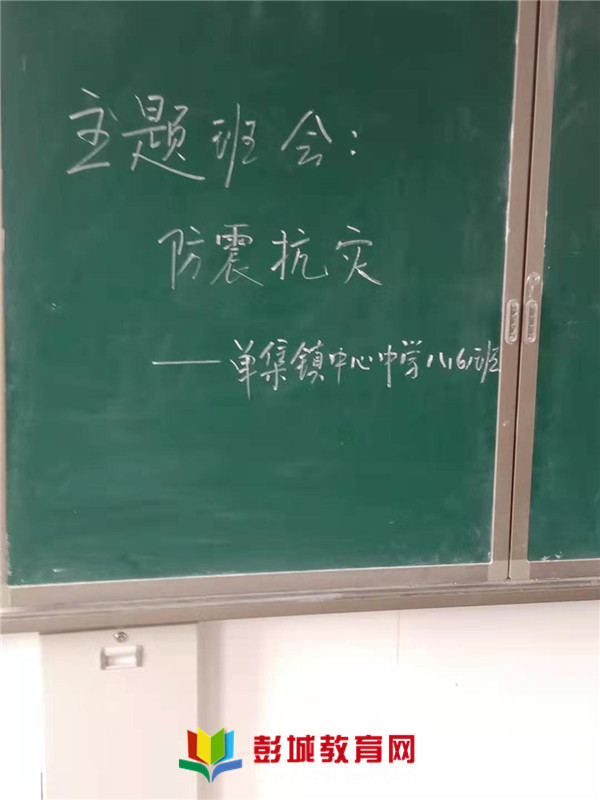 主题班会:
防震抗灾
——单集镇中心中学八(6)班
彭城教育网